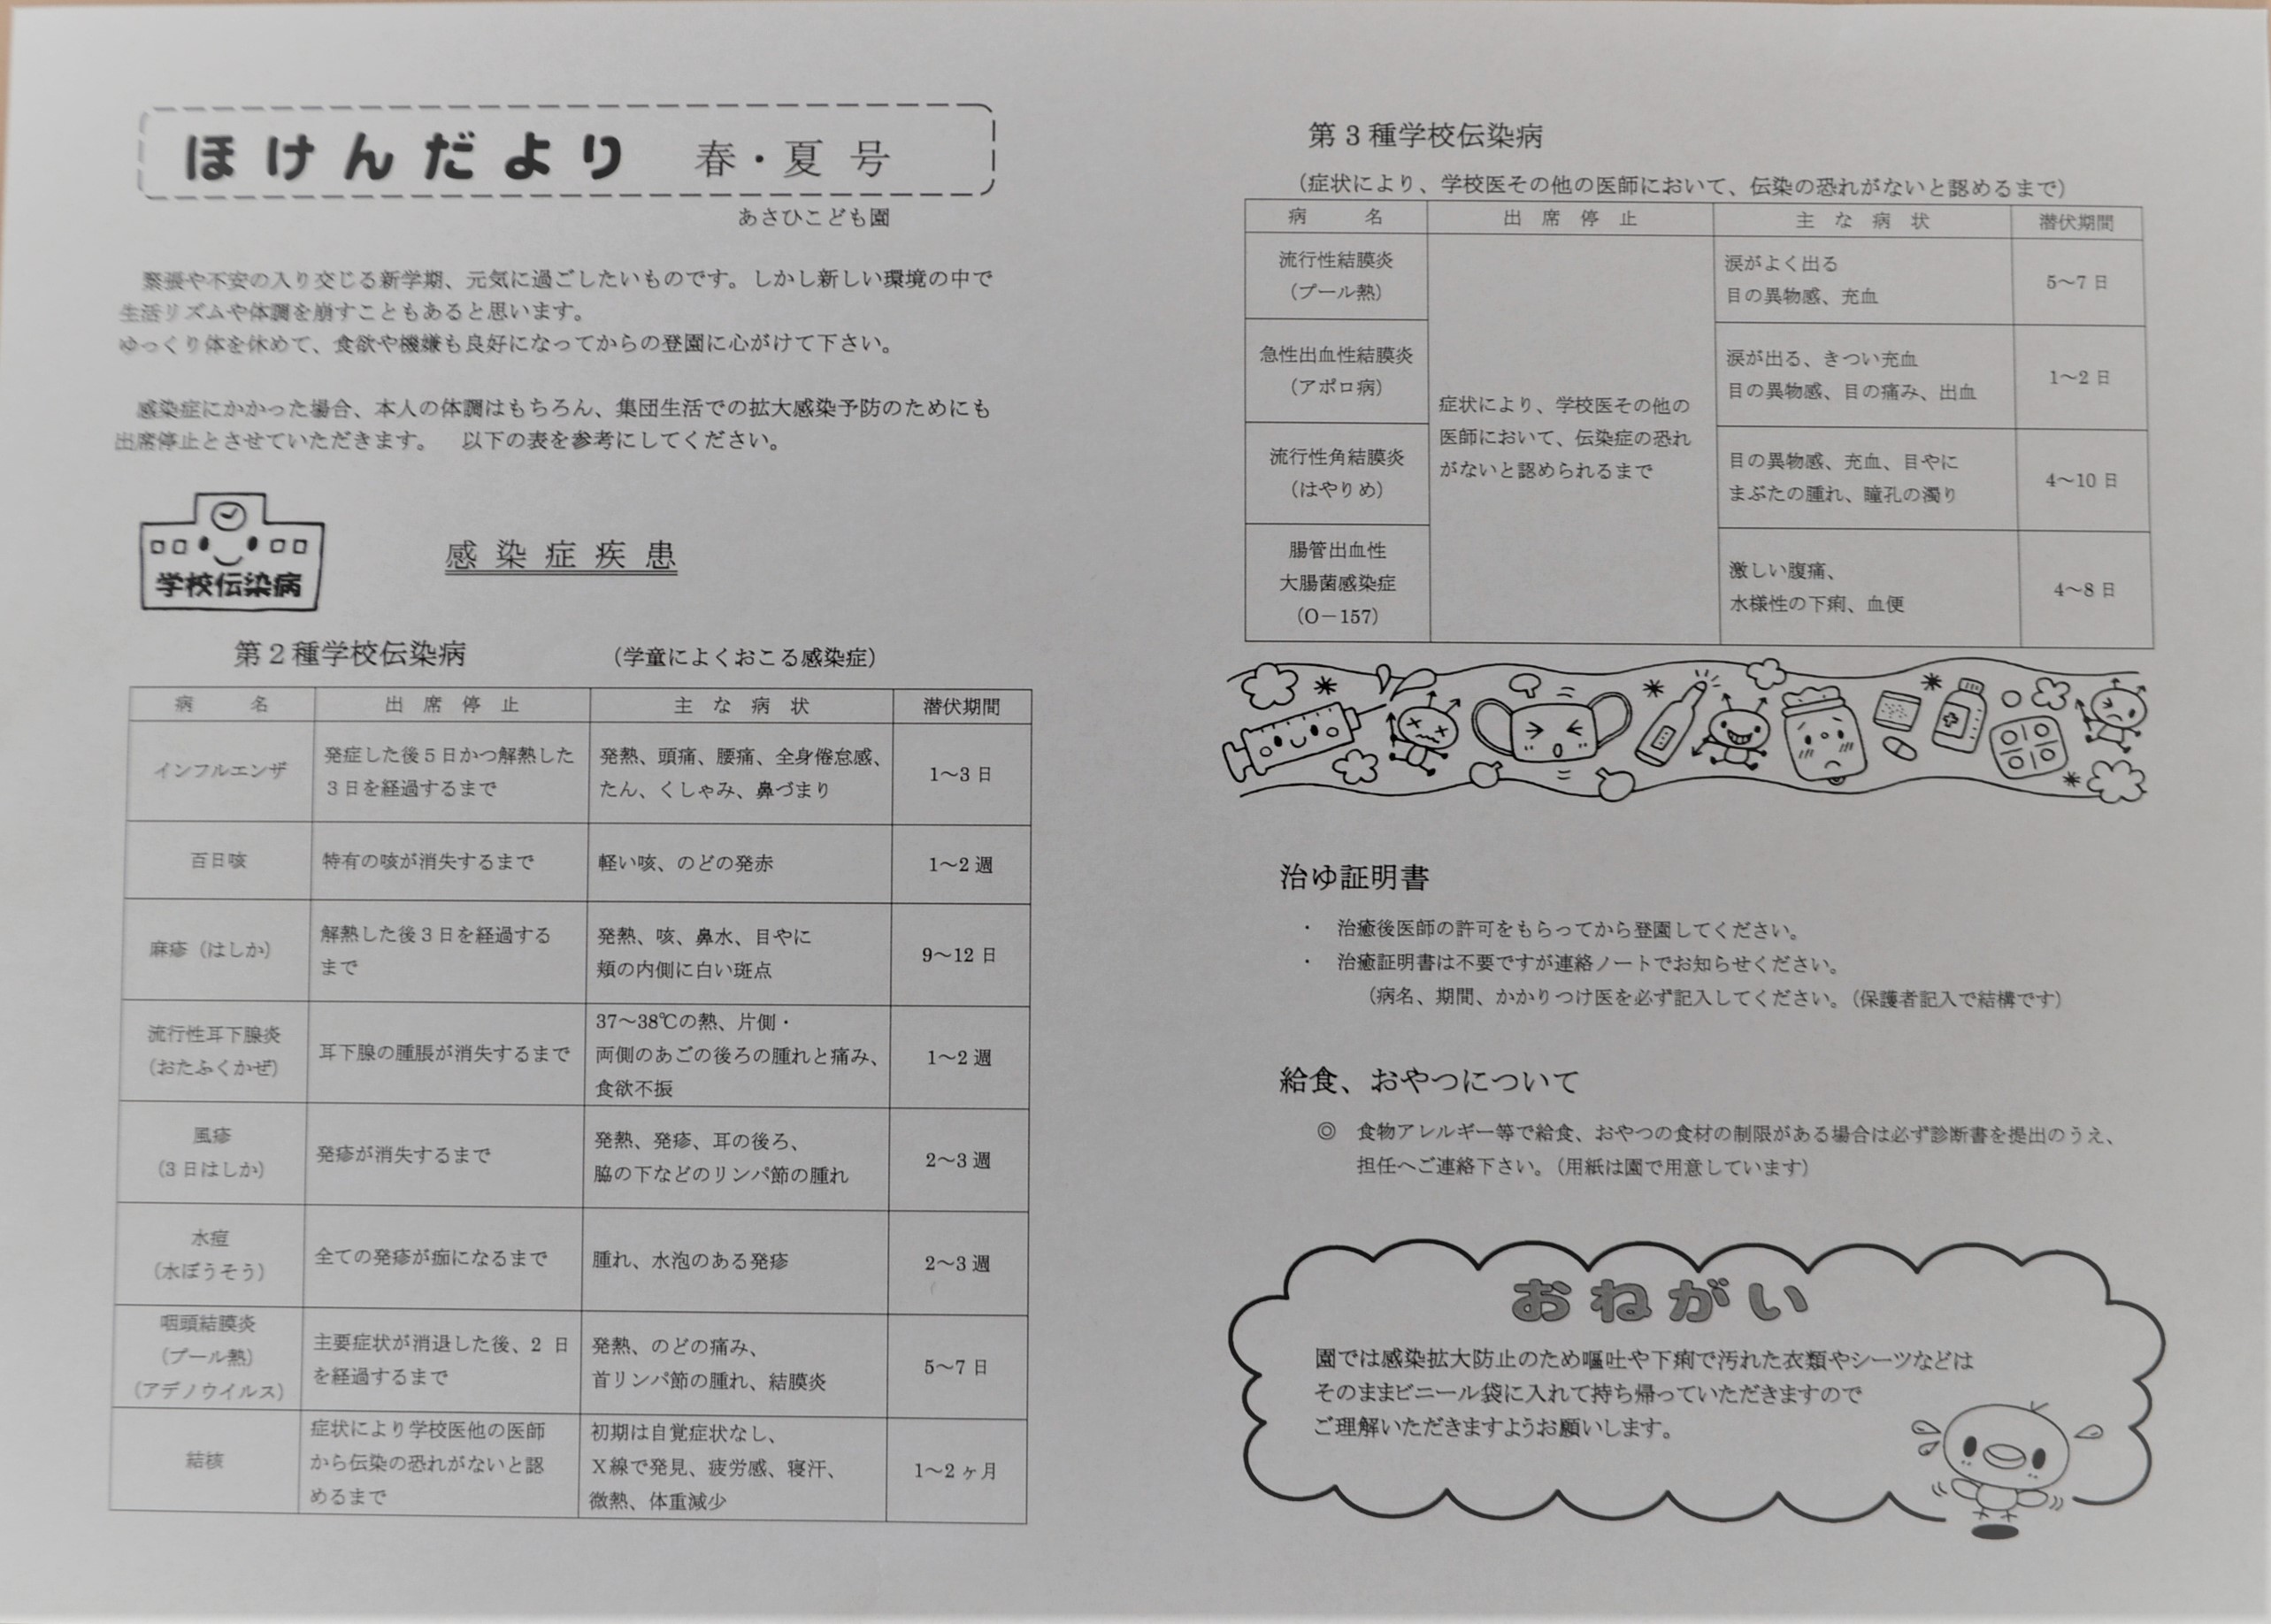 ほけんだより 春・夏 号
あさひこども園
緊張や不安の入り交じる新学期、元気に過ごしたいものです。しかし新しい環境の中で
生活リズムや体調を崩すこともあると思います。
ゆっくり体を休めて、食欲や機嫌も良好になってからの登園に心がけて下さい。
感染症にかかった場合、本人の体調はもちろん、集団生活での拡大感染予防のためにも
出席停止とさせていただきます。　以下の表を参考にしてください。
学校伝染病
感染症疾患
第2種学校伝染病　（学童によくおこる感染症）
病　名　出席停止　主な病状　潜伏期間
インフルエンザ
発症した後5日かつ解熱した
3日を経過するまで
発熱、頭痛、腰痛、全身倦怠感、
たん、くしゃみ、鼻づまり
1～3日
百日咳
特有の咳が消失するまで
軽い咳、のどの発赤
1～2週
麻疹（はしか）
解熱した後3日を経過する
まで
発熱、咳、鼻水、目やに
頬の内側に白い斑点
9～12日
流行性耳下腺炎
（おたふくかぜ）
耳下腺の腫脹が消失するまで
37～38℃の熱、片側・
両側のあごの後ろの腫れと痛み、
食欲不振
1～2週
風疹
（3日はしか）
発疹が消失するまで
発熱、発疹、耳の後ろ、
脇の下などのリンパ節の腫れ
2～3週
水痘
（水ぼうそう）
全ての発疹が痂になるまで
腫れ、水泡のある発疹
2～3週
咽頭結膜炎
（プール熱）
（アデノウイルス）
主要症状が消退した後、2日
を経過するまで
発熱、のどの痛み、
首リンパ節の腫れ、結膜炎
5～7日
結核
症状により学校医他の医師
から伝染の恐れがないと認
めるまで
初期は自覚症状なし、
X線で発見、疲労感、寝汗、
微熱、体重減少
1～2ヶ月
第3種学校伝染病
（症状により、学校医その他の医師において、伝染の恐れがないと認めるまで）
病　名　出席停止　主な病状　潜伏期間
流行性結膜炎
（プール熱）
症状により、学校医その他の
医師において、伝染症の恐れ
がないと認められるまで
涙がよく出る
目の異物感、充血
5～7日
急性出血性結膜炎
（アポロ病）
涙が出る、きつい充血
目の異物感、目の痛み、出血
1～2日
流行性角結膜炎
（はやりめ）
目の異物感、充血、目やに
まぶたの腫れ、瞳孔の濁り
4～10日
腸管出血性
大腸菌感染症
（O－157）
激しい腹痛、
水様性の下痢、血便
4～8日
治ゆ証明書
・　治癒後医師の許可をもらってから登園してください。
・　治癒証明書は不要ですが連絡ノートでお知らせください。
（病名、期間、かかりつけ医を必ず記入してください。（保護者記入で結構です）
給食、おやつについて
◎　食物アレルギー等で給食、おやつの食材の制限がある場合は必ず診断書を提出のうえ、
担任へご連絡下さい。（用紙は園で用意しています）
おねがい
園では感染拡大防止のため嘔吐や下痢で汚れた衣類やシーツなどは
そのままビニール袋に入れて持ち帰っていただきますので
ご理解いただきますようお願いします。